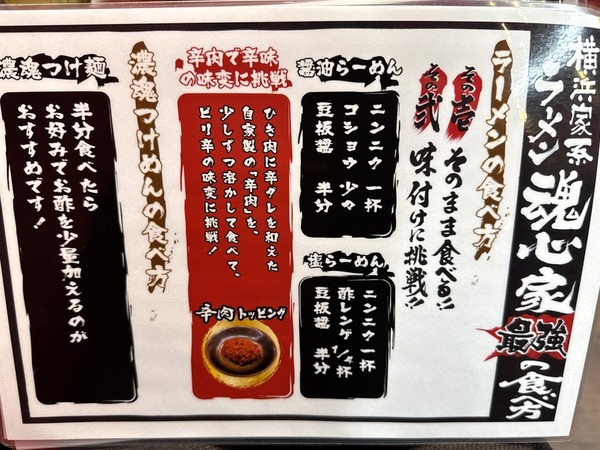 横浜家系
ラーメン魂心家
最強の食べ方
ラーメンの食べ方
その壱 そのまま食べる!!
その弐 味付けに挑戦!!
醤油らーめん
ニンニク 一杯
コショウ 少々
豆板醤 半分
塩らーめん
ニンニク 一杯
酢レンゲ 1/4杯
豆板醤 半分
辛肉で辛味
の味変に挑戦
ひき肉に辛ダレを和えた
自家製の「辛肉」を、
少しずつ溶かして食べて、
ピリ辛の味変に挑戦!
辛肉トッピング
濃魂つけめんの食べ方
濃魂つけ麺
半分食べたら
お好みでお酢を少量加えるのが
おすすめです!